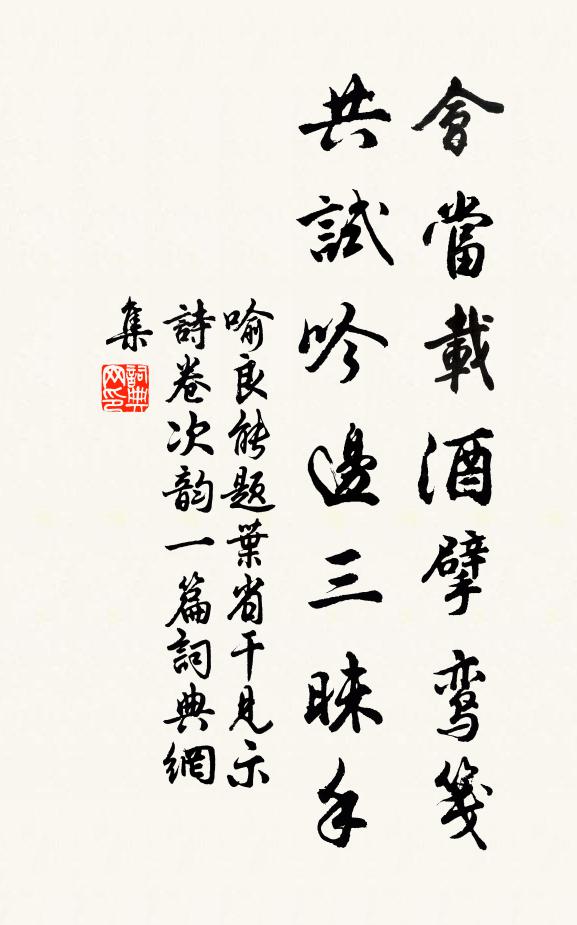 會當載酒擘鸾箋
共試吟邊三昧手
喻良能題葉省干見示
詩卷次韵一篇詞典網
集
詞典
网印